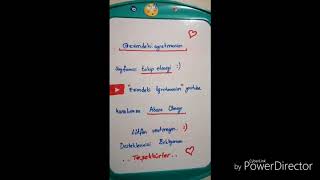 Evimdeki öğretmenim
sayfamızı takip etmeyi :)
"Evimdeki Öğretmenim" youtube
kanalımıza Abone Olmayı
Lütfen unutmayın. :)
Desteklerinizi Bekliyorum
.. Teşekkürler ..
by PowerDirector